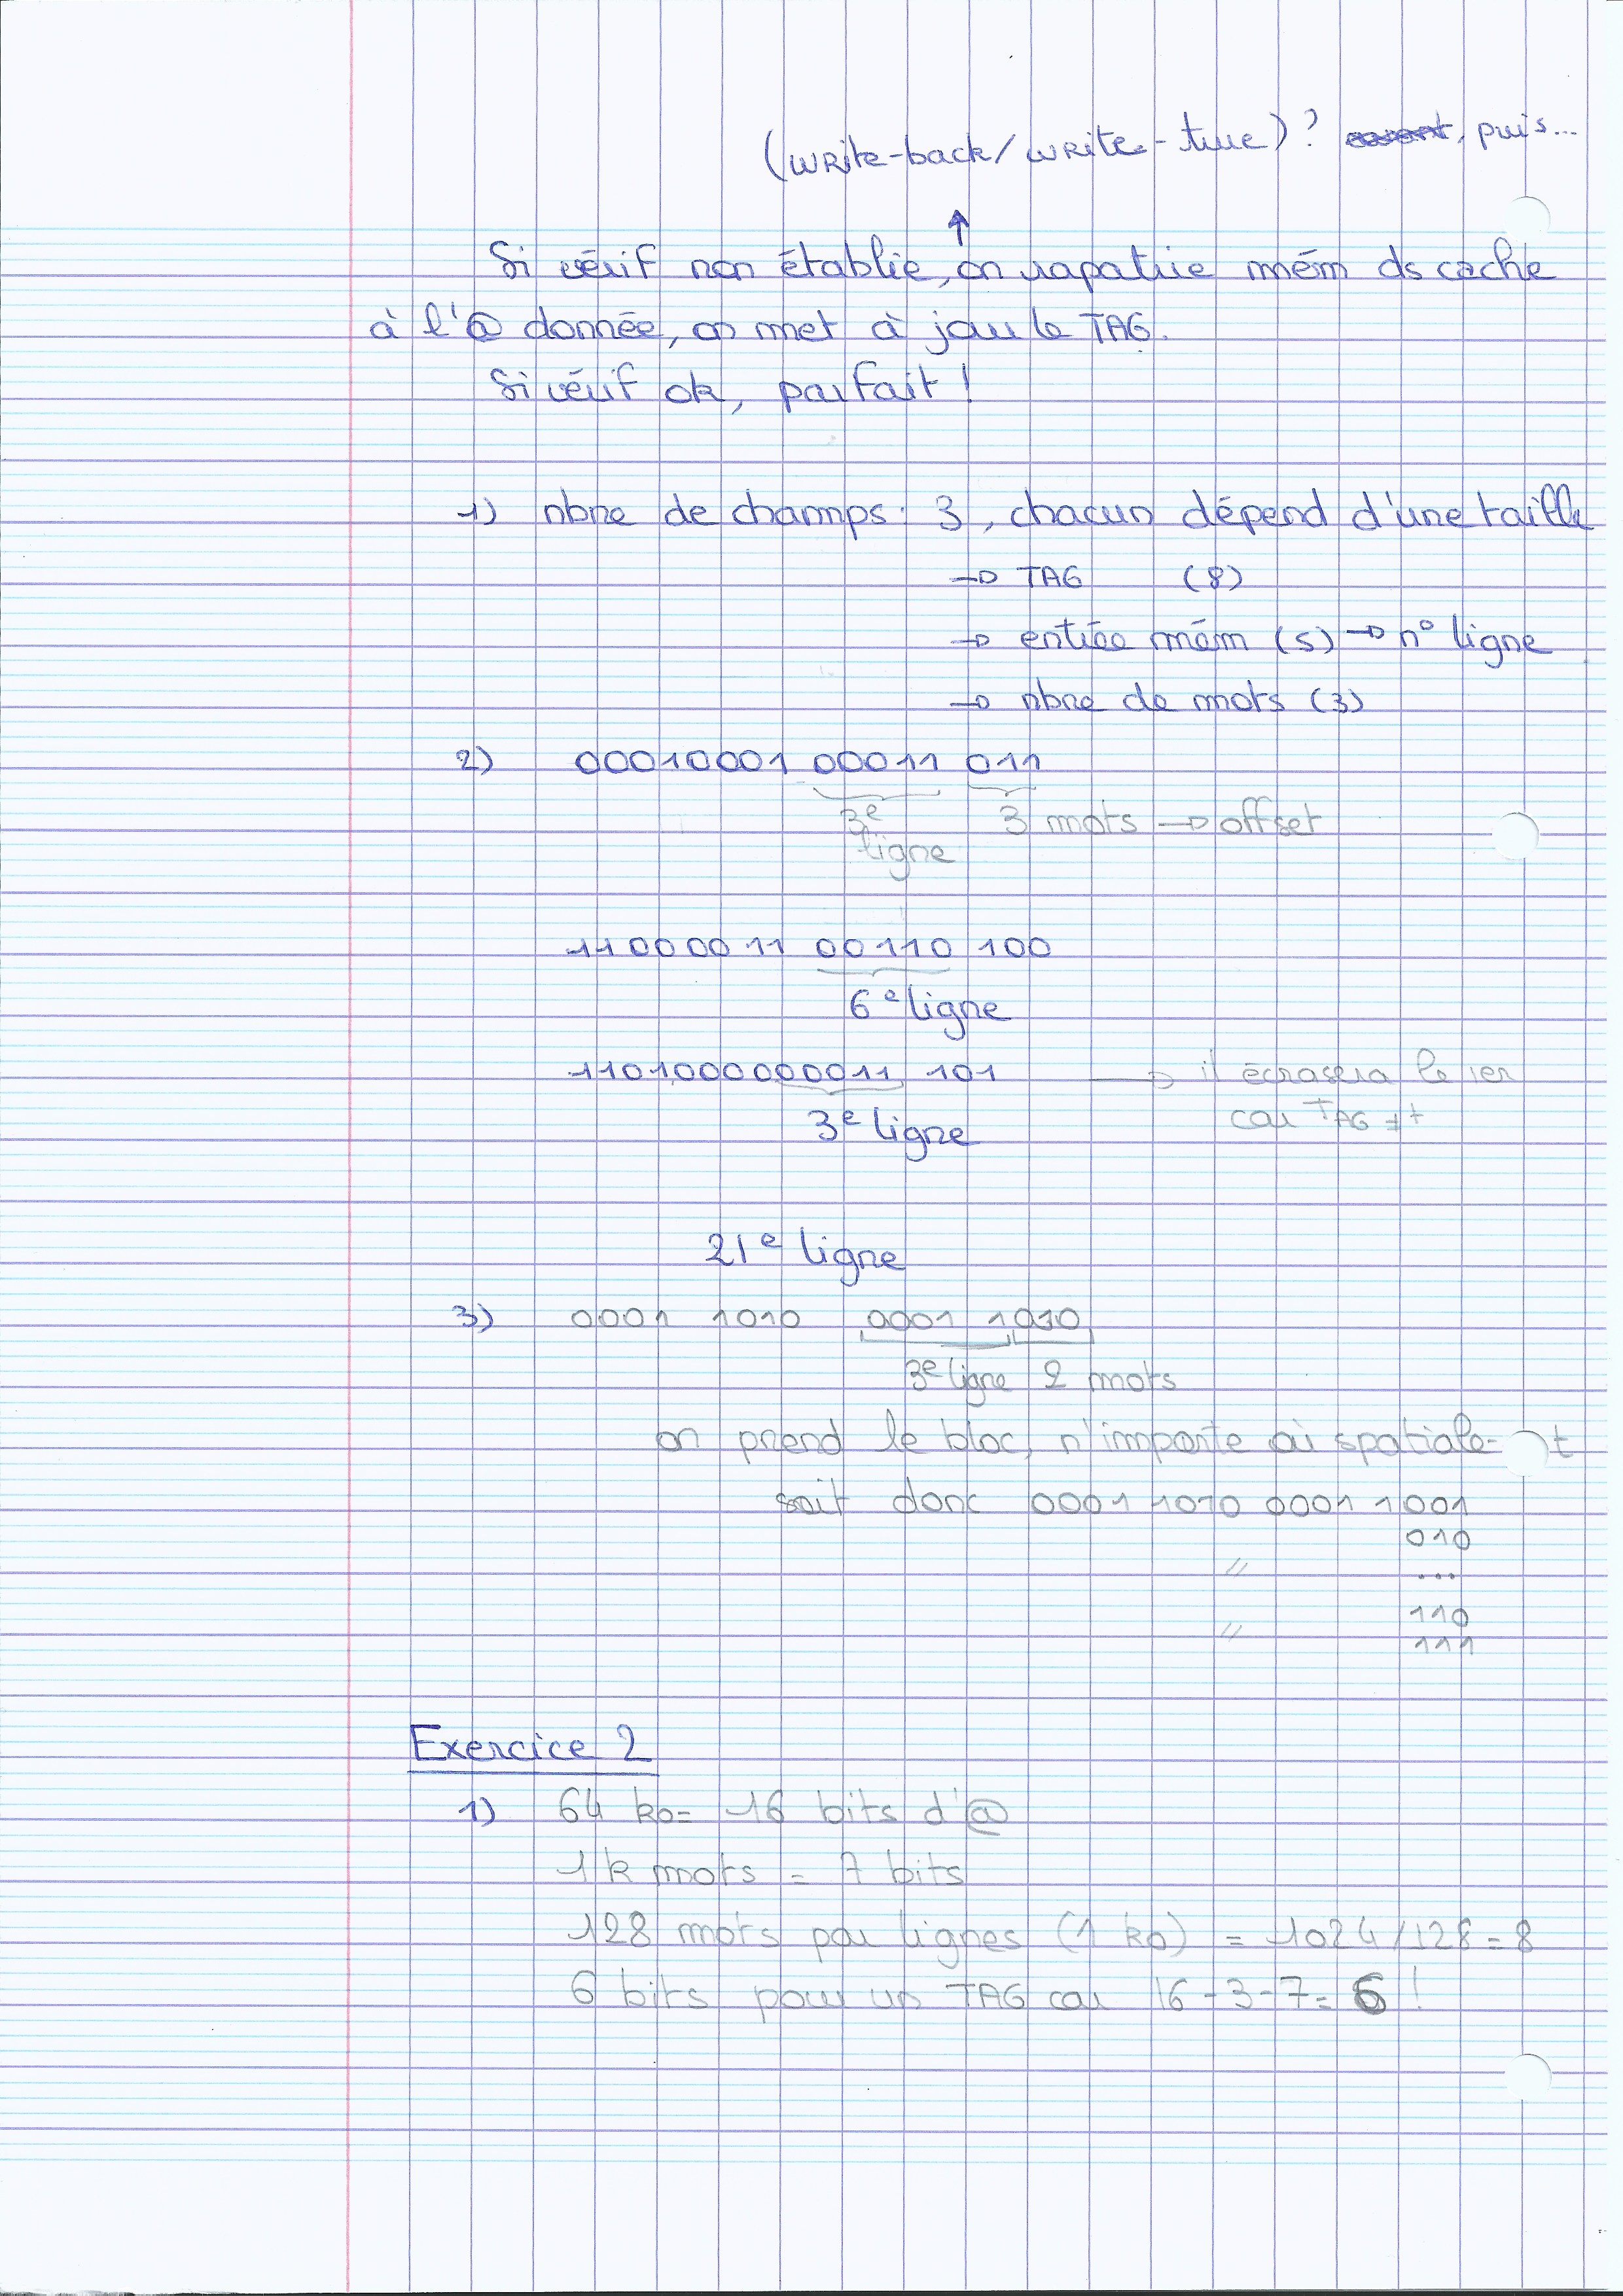 (write-back/write-true)? , puis...
↑
Si vérif non établie, on rapatrie mém ds cache
à l'@ donnée, on met à jour le TAG.
Si vérif ok, parfait !
1) nbre de champs : 3, chacun dépend d'une taille
→ TAG (8)
→ entrée mém (5) → n° ligne
→ nbre de mots (3)
2) 00010001 00011 011
3e ligne 3 mots → offset
11000011 00110 100
6e ligne
1101000000011 101 → il écrasera le 1er
car TAG ≠t
3e ligne
21e ligne
3) 0001 1010 0001 1010
3e ligne 2 mots
on prend le bloc, n'importe où spatiale-t
soit donc 0001 1010 0001 1001
010
" ...
110
" 111
Exercice 2
1) 64 ko = 16 bits d'@
1 k mots = 7 bits
128 mots par lignes (1 ko) = 1024/128 = 8
6 bits pour un TAG car 16-3-7= 6 !